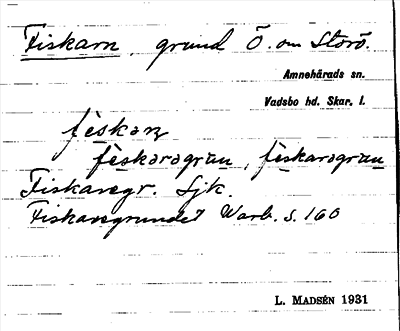 Fiskarn, grund Ö. om Storö.
Amnehärads sn.
Vadsbo hd. Skar. l.
feskaɳ
feskaragrun, feskaragrun
Fiskaregr. Sjk.
Fiskaregrundet Warb. S. 160
L. MADSÉN 1931